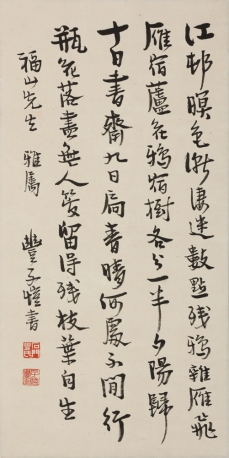 江邨暝色漸凄迷數點殘鴉雜雁飛
雁宿蘆花鴉宿樹各分一半夕陽歸
十日書齋九日扃春晴何處不閒行
瓶花落盡無人管留得殘枝葉自生
福山先生 雅屬
豐子愷書